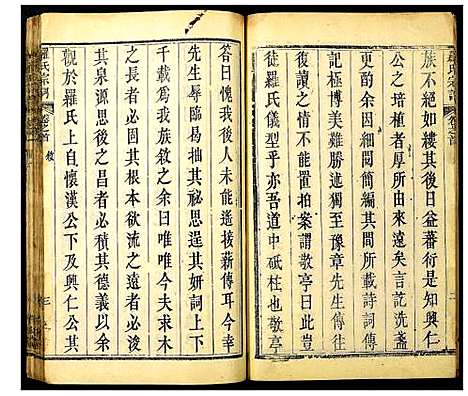 族不絕如縷其後日益蕃衍是知興仁
公之培植者厚所由來遠矣言訖洗盞
記極博美難勝述獨至豫章先生傳往
復細閱簡編其間所載詩詞傳
讀之情不能置拍案謂敬亭曰此豈獨
徒羅氏儀型乎亦吾道中砥柱也敬亭
答曰愧我後人何能遙接薪傳耳今幸
先生辱臨曷抽其祕思逞其妍詞上下
千載爲我族敘之余曰唯唯今夫求木
之長者必固其根本欲流之遠者必浚
其泉源族之昌者必積其德義以余
觀於羅氏上自懷漢公下及興仁公其
羅氏宗譜
卷之首
敘
三